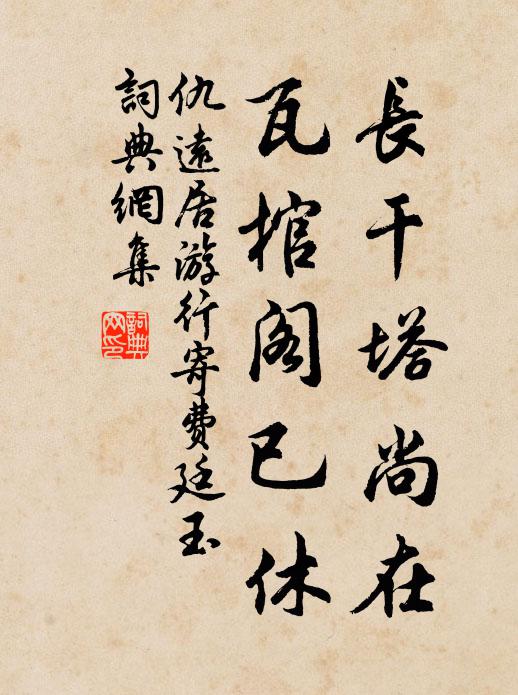 長干塔尚在
瓦棺阁已休
仇遠居游行寄費廷玉
詞典網集
詞典
网印